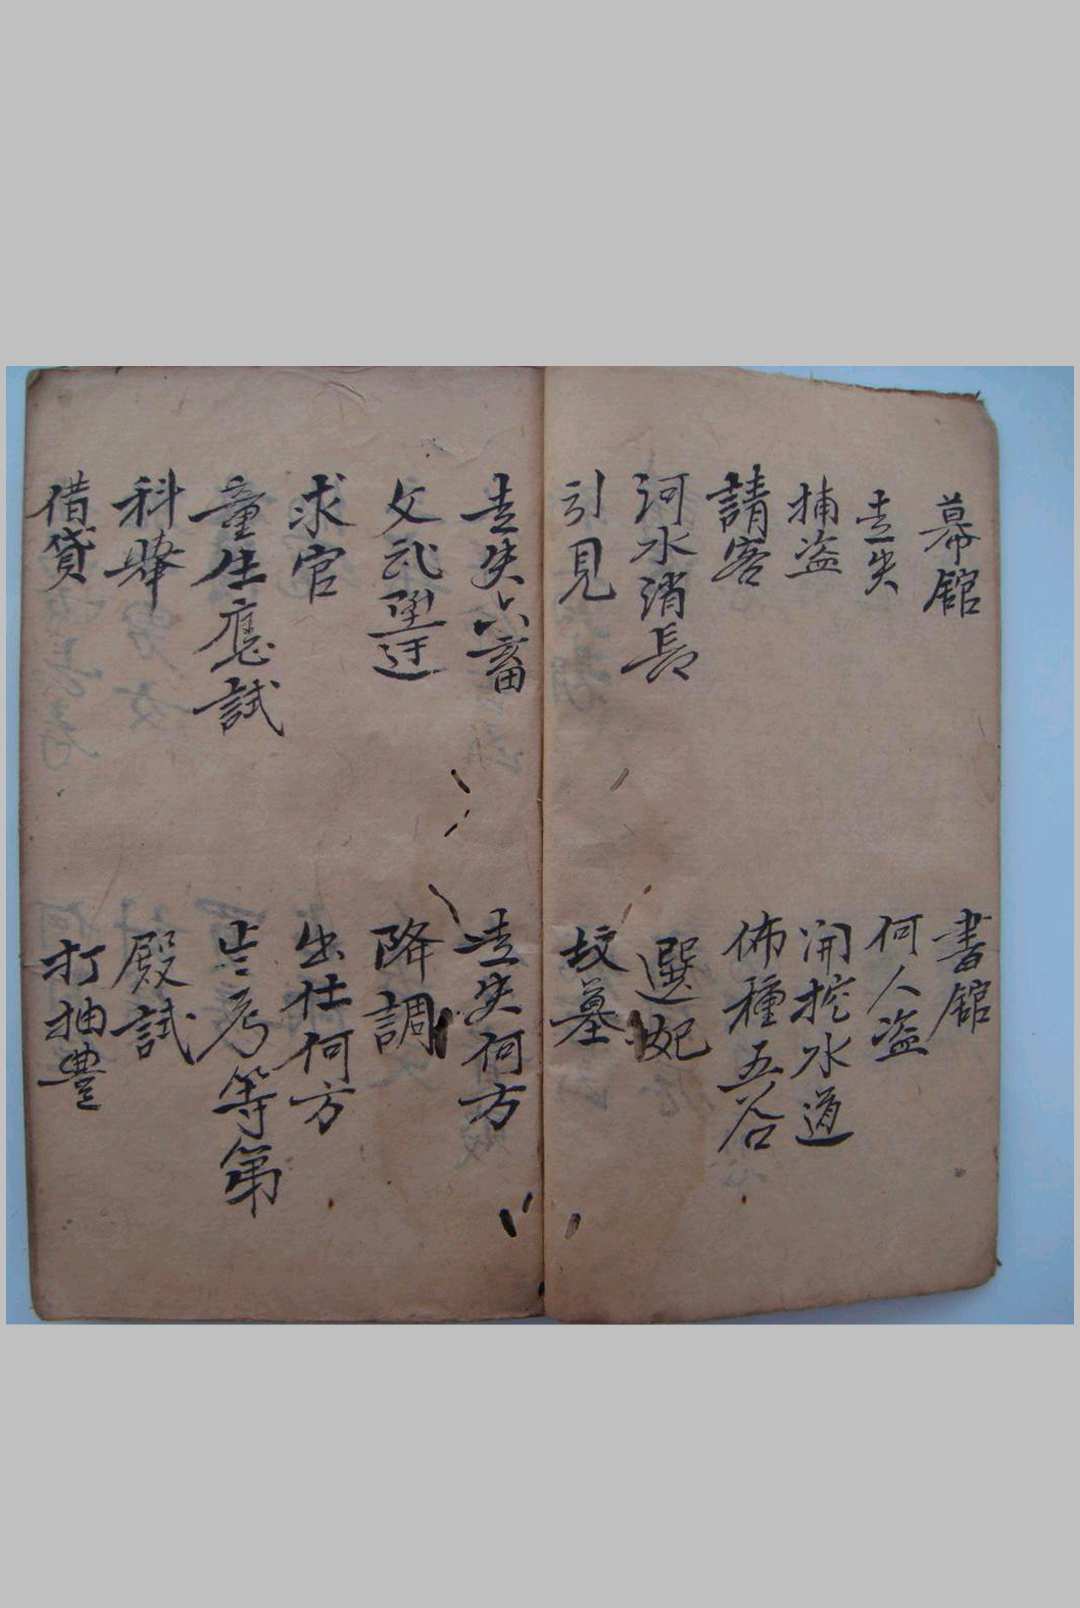 幕館
書館
走失
何人盗
捕盗
開挖水道
請客
佈種五谷
河水消長
選妃
引見
坟墓
走失六畜
走失何方
文武陞迁
降調
求官
出仕何方
童生應試
考等第
科舉
殿試
借貸
打抽豐